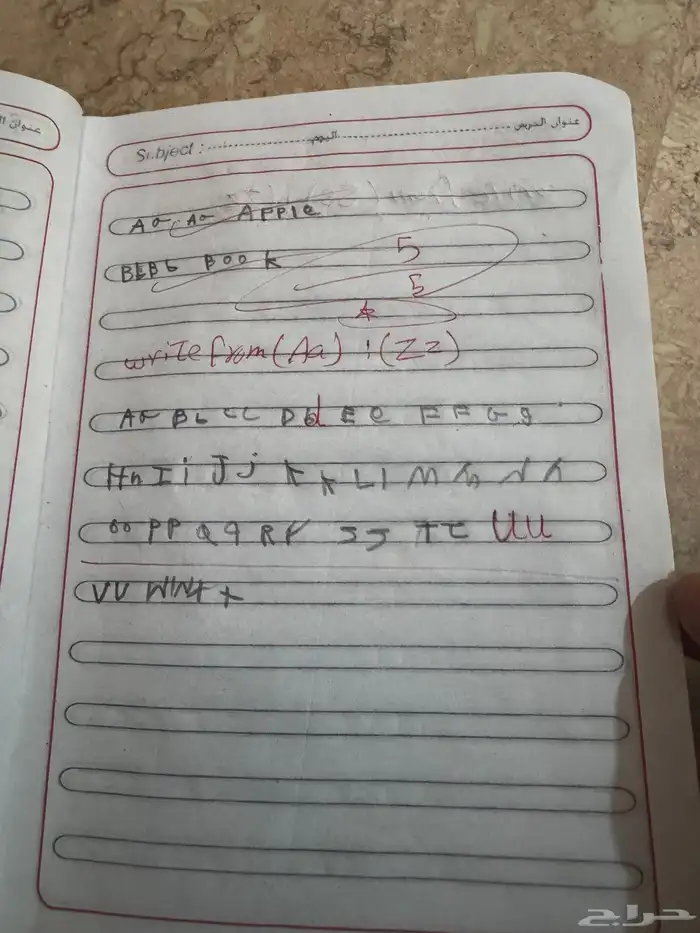 عنوان الدرس ............ اليوم ............ Subject :
Aa Aa APPle
BbBb Book 5
5
write from (Aa) : (Zz)
Aa Bb CC Dd Ee FF Gg
Hh Ii Jj Kk Ll Mm Nn
oo PP Qq Rr SS Tt Uu
VV WW X x
حراج